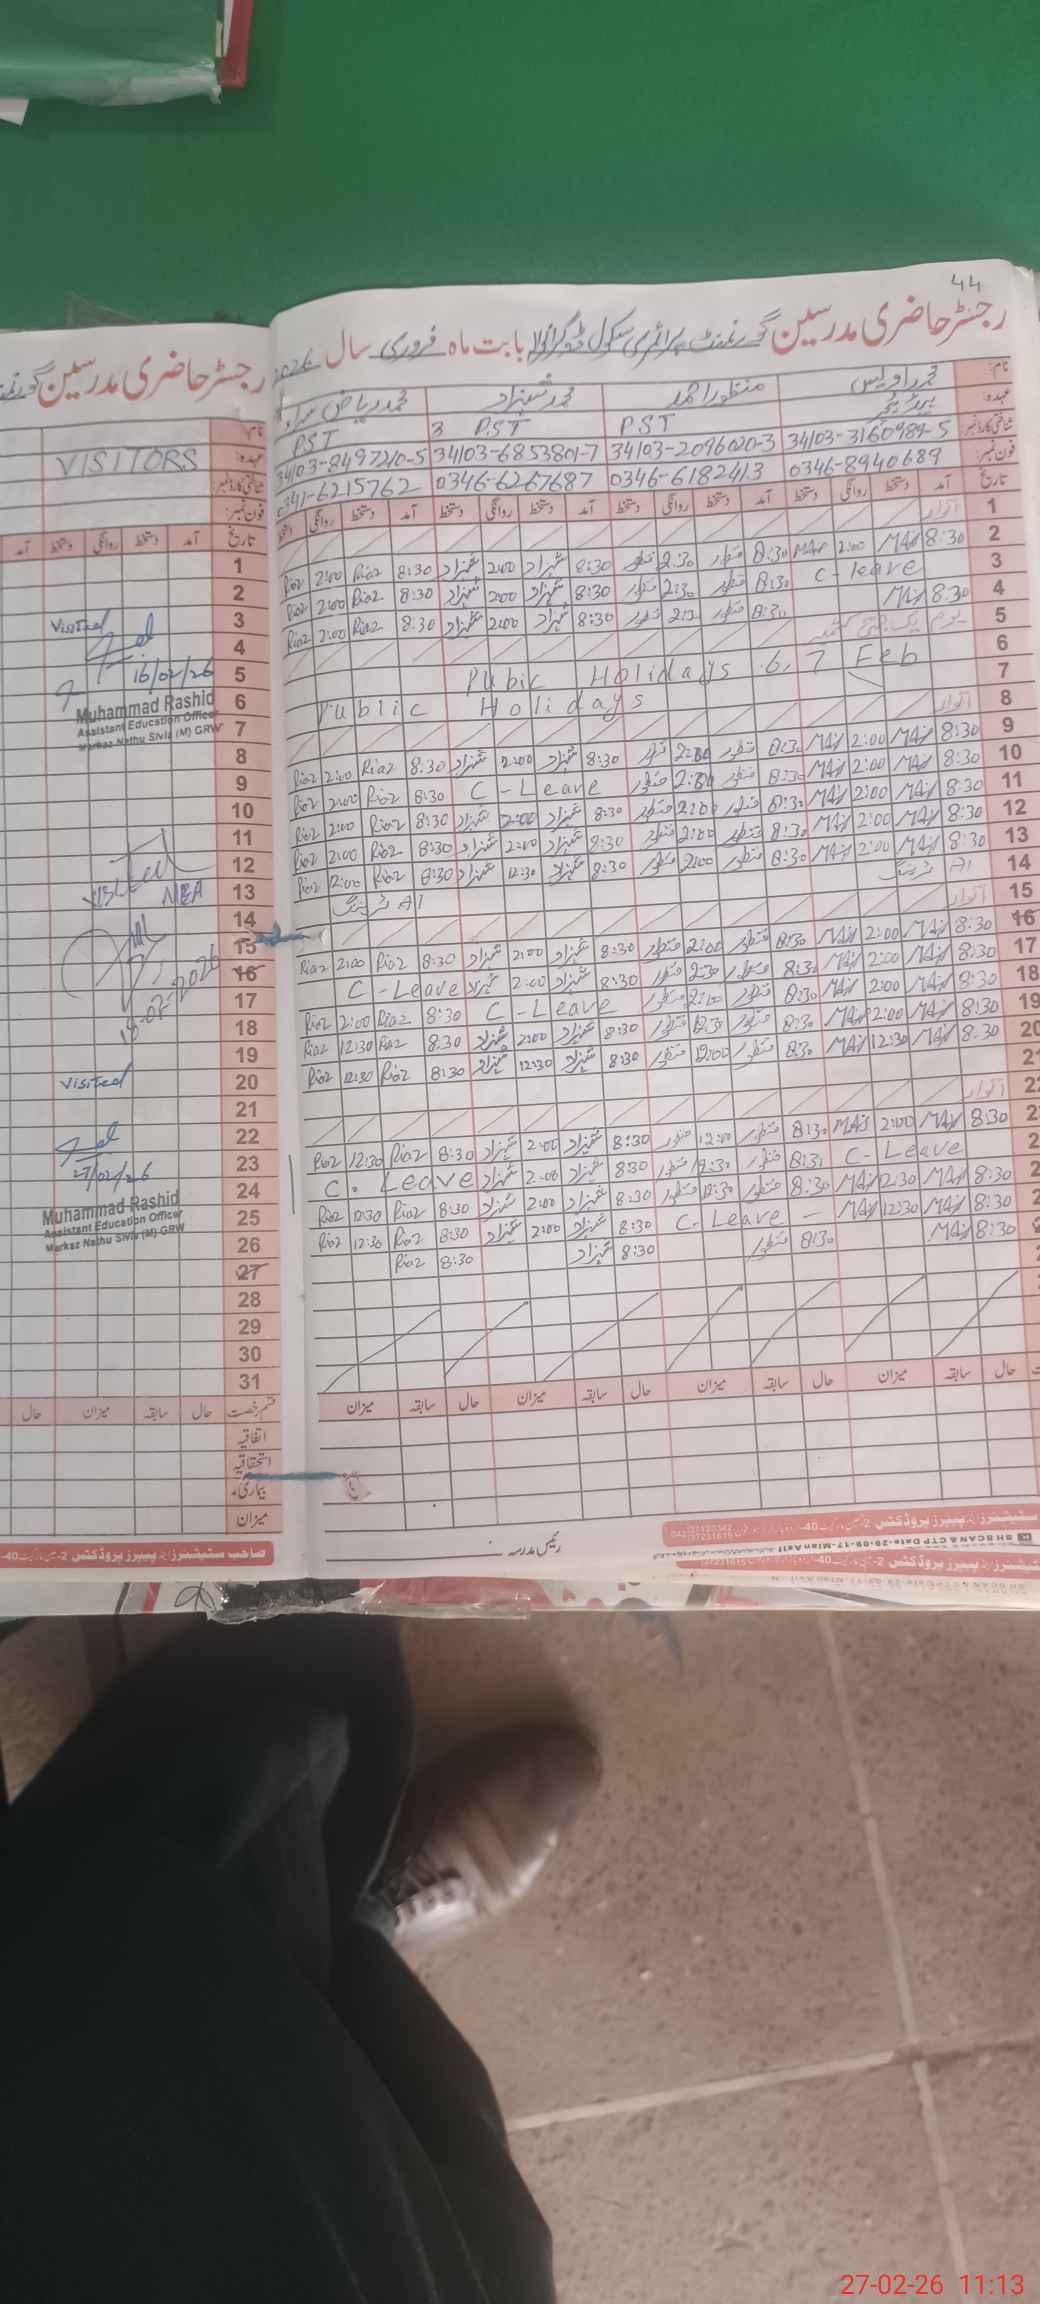 44
رجسٹر حاضری مدرسین گورنمنٹ پرائمری سکول بابت ماہ فروری سال 2026
نام: محمد اویس منظور احمد محمد شہزاد محمد ریاض
عہدہ: PST PST PST
شناختی کارڈ نمبر: 34103-3160989-5 34103-2096020-3 34103-6853801-7 34103-8497210-5
فون نمبر: 0346-8940689 0346-6182413 0346-6267687 0341-6215762
تاریخ آمد دستخط روانگی دستخط آمد دستخط روانگی دستخط آمد دستخط روانگی دستخط آمد دستخط روانگی دستخط
1 اتوار
2 8:30 MAW 2:00 MAW 8:30 منظور 2:30 منظور 8:30 شہزاد 2:00 شہزاد 8:30 Riaz 2:00 Riaz
3 C-leave 8:30 منظور 2:30 منظور 8:30 شہزاد 2:00 شہزاد 8:30 Riaz 2:00 Riaz
4 8:30 MAW 8:30 منظور منظور 8:30 شہزاد 2:00 شہزاد 8:30 Riaz 2:00 Riaz
5
6 Pubic Holidays 6,7 Feb
7 Public Holidays
8 اتوار
9 8:30 MAW 2:00 MAW 8:30 منظور 2:00 منظور 8:30 شہزاد 2:00 شہزاد 8:30 Riaz 2:00 Riaz
10 8:30 MAW 2:00 MAW 8:30 منظور 2:00 منظور C-Leave 8:30 Riaz 2:00 Riaz
11 8:30 MAW 2:00 MAW 8:30 منظور 2:00 منظور 8:30 شہزاد 2:00 شہزاد 8:30 Riaz 2:00 Riaz
12 8:30 MAW 2:00 MAW 8:30 منظور 2:00 منظور 8:30 شہزاد 2:00 شہزاد 8:30 Riaz 2:00 Riaz
13 8:30 MAW 2:00 MAW 8:30 منظور 2:00 منظور 8:30 شہزاد 12:30 شہزاد 8:30 Riaz 2:00 Riaz
14 AI ٹریننگ AI ٹریننگ
15 اتوار
16 8:30 MAW 2:00 MAW 8:30 منظور 2:00 منظور 8:30 شہزاد 2:00 شہزاد 8:30 Riaz 2:00 Riaz
17 8:30 MAW 2:00 MAW 8:30 منظور 2:30 منظور 8:30 شہزاد 2:00 شہزاد C-Leave
18 8:30 MAW 2:00 MAW 8:30 منظور 2:00 منظور C-Leave 8:30 Riaz 2:00 Riaz
19 8:30 MAW 2:00 MAW 8:30 منظور منظور 8:30 شہزاد 2:00 شہزاد 8:30 Riaz 12:30 Riaz
20 8:30 MAW 12:30 MAW 8:30 منظور 12:00 منظور 8:30 شہزاد 12:30 شہزاد 8:30 Riaz 12:30 Riaz
21
22 اتوار
8:30 MAW 2:00 MAW 8:30 منظور 12:00 منظور 8:30 شہزاد 2:00 شہزاد 8:30 Riaz 12:30 Riaz
C-Leave 8:30 منظور 12:30 منظور 8:30 شہزاد 2:00 شہزاد C. Leave
8:30 MAW 12:30 MAW 8:30 منظور 12:30 منظور 8:30 شہزاد 2:00 شہزاد 8:30 Riaz 12:30 Riaz
8:30 MAW 12:30 MAW C-Leave 8:30 شہزاد 2:00 شہزاد 8:30 Riaz 12:30 Riaz
8:30 MAW 8:30 منظور 8:30 شہزاد 8:30 Riaz
حال سابقہ میزان حال سابقہ میزان حال سابقہ میزان حال سابقہ میزان
رئیس مدرسہ
رجسٹر حاضری مدرسین
نام:
عہدہ: VISITORS
شناختی کارڈ نمبر:
فون نمبر:
تاریخ آمد دستخط روانگی دستخط آمد
1
2
3 Visited
4
5 16/02/26
6 Muhammad Rashid
7 Assistant Education Officer
Markaz Nathu Sivia (M) GRW
8
9
10
11
12 Visited
13 MEA
14
15
16
17 18-02-2026
18
19
20 Visited
21
22
23 27/02/26
24 Muhammad Rashid
25 Assistant Education Officer
26 Markaz Nathu Sivia (M) GRW
27
28
29
30
31
قسم رخصت حال سابقہ میزان حال
اتفاقیہ
استحقاقیہ
بیماری
میزان
صاحب سٹیشنرز اینڈ پیپرز پروڈکٹس
27-02-26 11:13